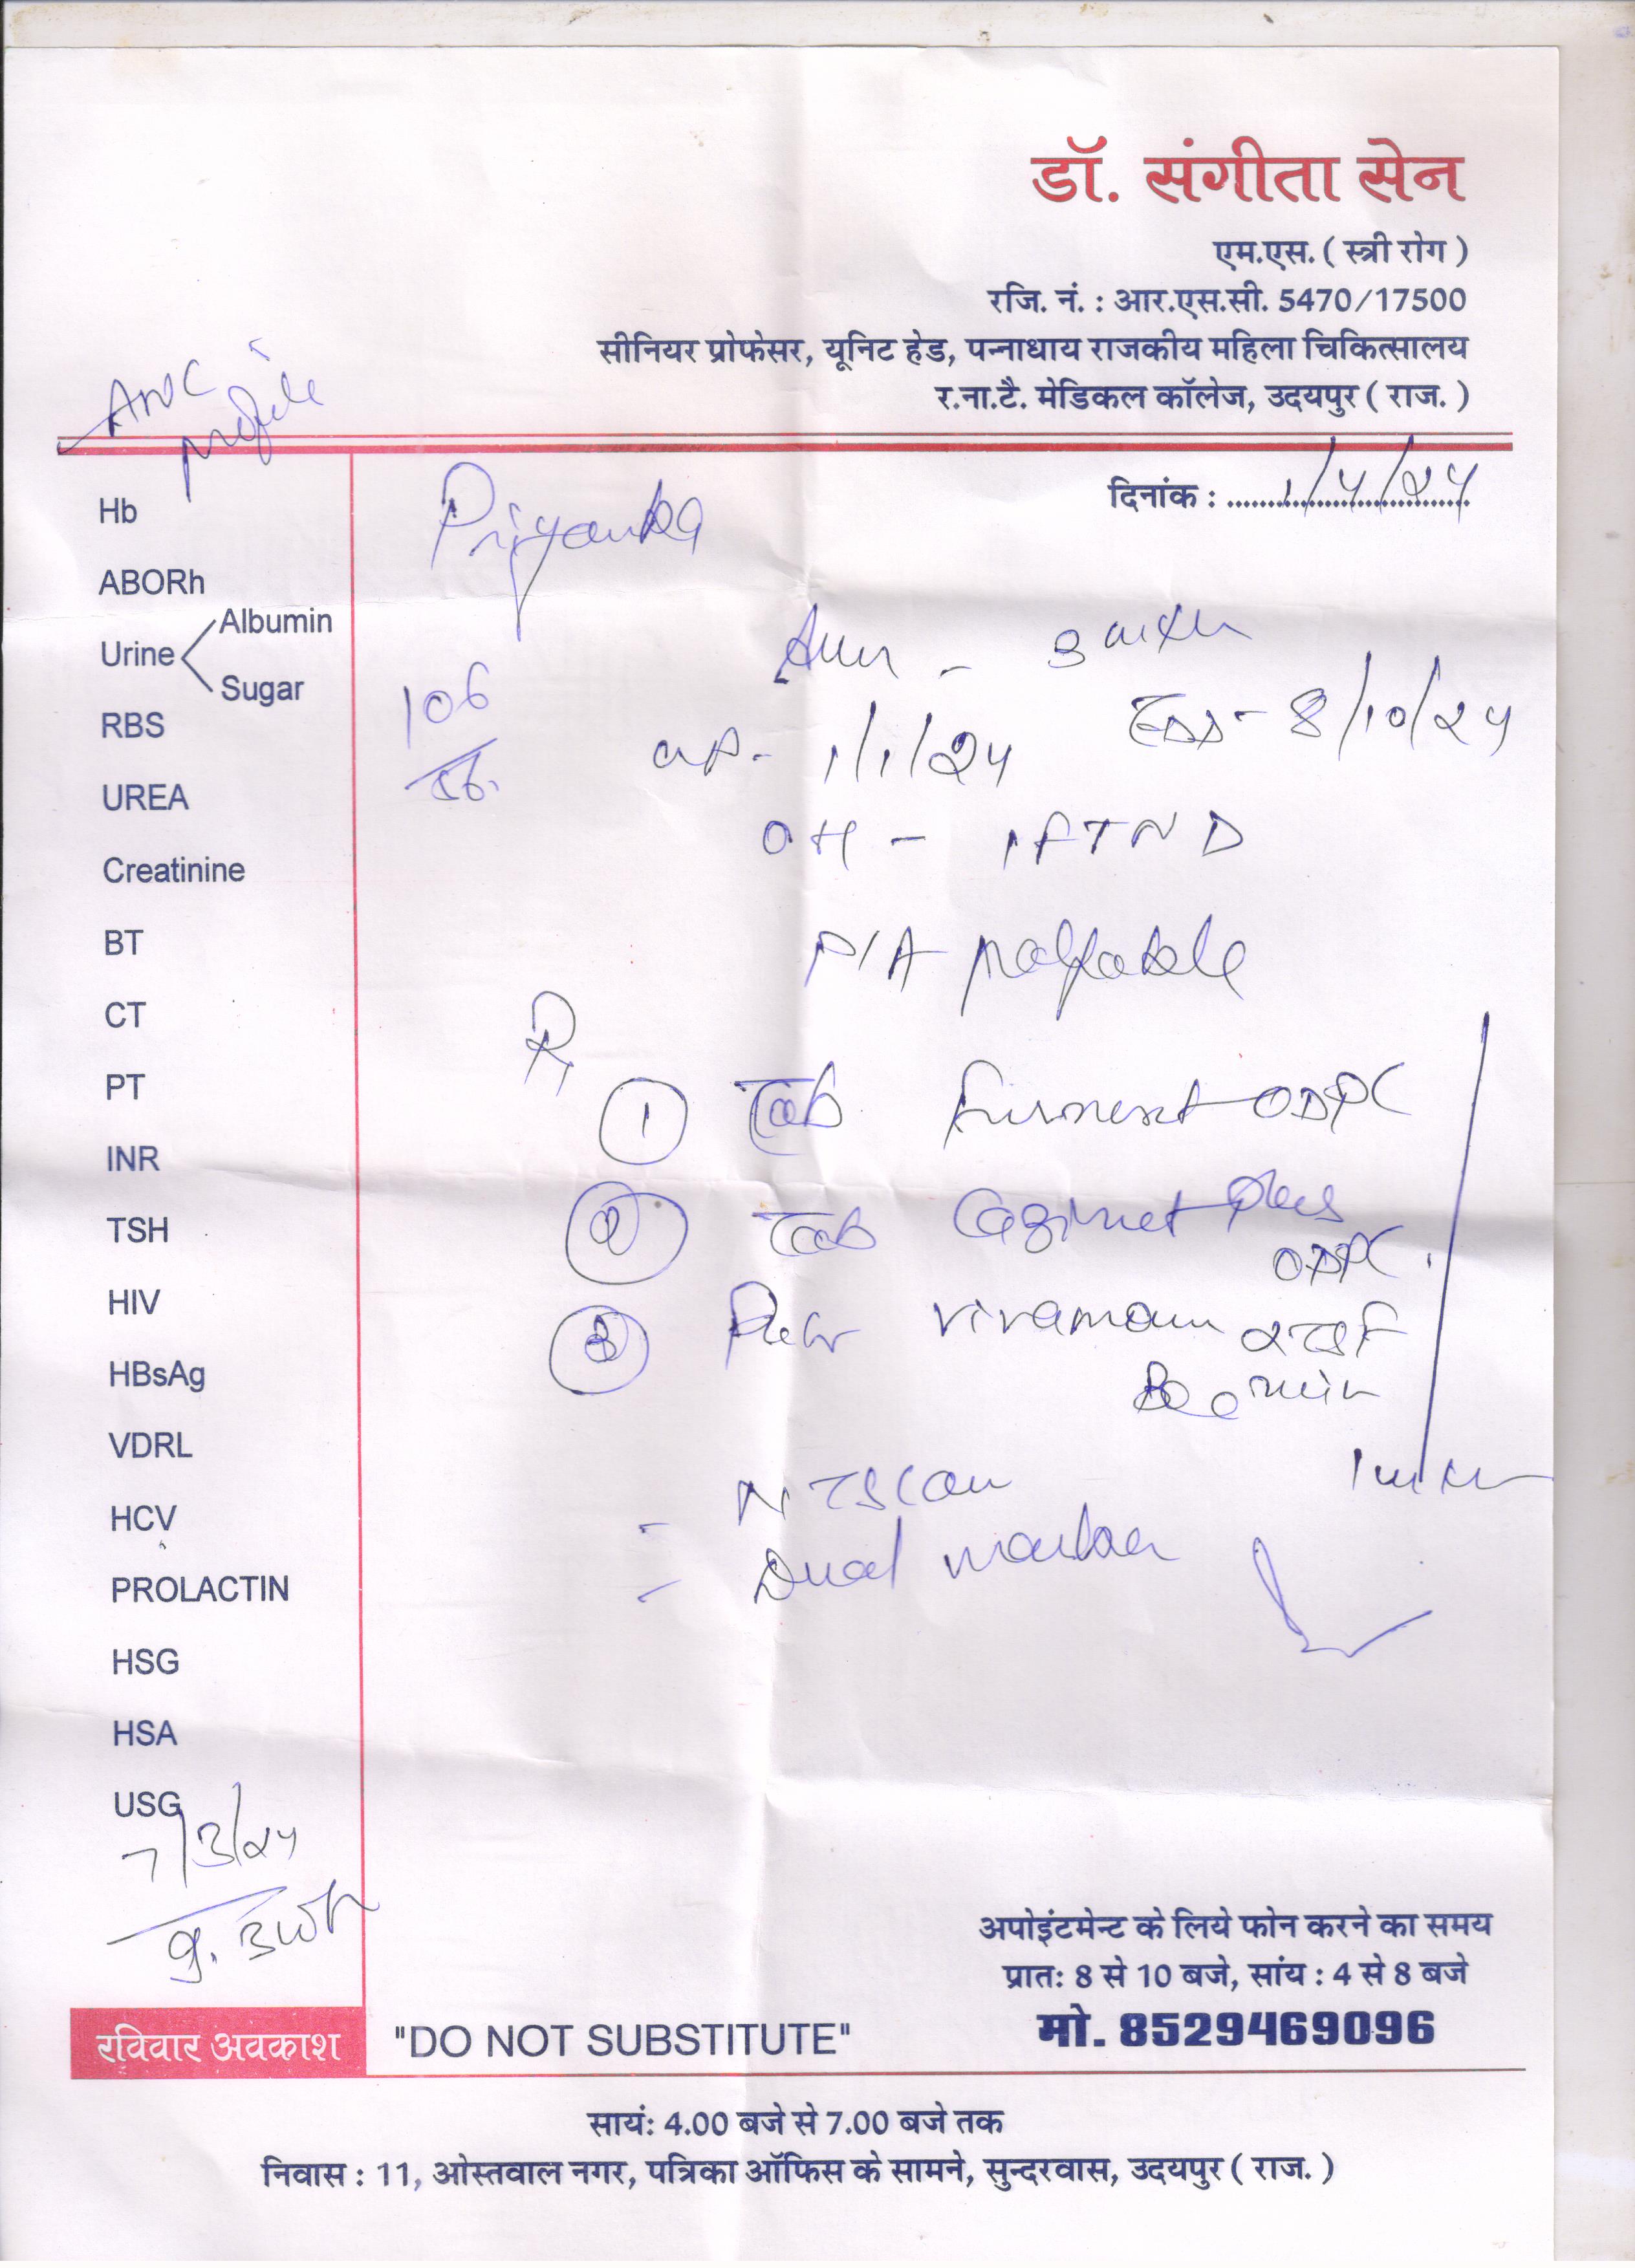 डॉ. संगीता सेन
एम.एस. ( स्त्री रोग )
रजि. नं. : आर.एस.सी. 5470/17500
सीनियर प्रोफेसर, यूनिट हेड, पन्नाधाय राजकीय महिला चिकित्सालय
र.ना.टै. मेडिकल कॉलेज, उदयपुर ( राज. )
ANC
profile
दिनांक : 1/4/24
Priyanka
Hb
ABORh
Urine Albumin
Sugar
RBS
UREA
Creatinine
BT
CT
PT
INR
TSH
HIV
HBsAg
VDRL
HCV
PROLACTIN
HSG
HSA
USG
7/3/24
106
Amn - 3
1/1/24
EDD - 8/10/24
OH - 1 FTND
P/A palpable
Rx
1 Tab ODPC
2 Tab Plus
ODPC
3
- NT Scan
- Dual marker
अपोइंटमेन्ट के लिये फोन करने का समय
प्रातः 8 से 10 बजे, सांय : 4 से 8 बजे
मो. 8529469096
रविवार अवकाश
"DO NOT SUBSTITUTE"
सायं: 4.00 बजे से 7.00 बजे तक
निवास : 11, ओस्तवाल नगर, पत्रिका ऑफिस के सामने, सुन्दरवास, उदयपुर ( राज. )